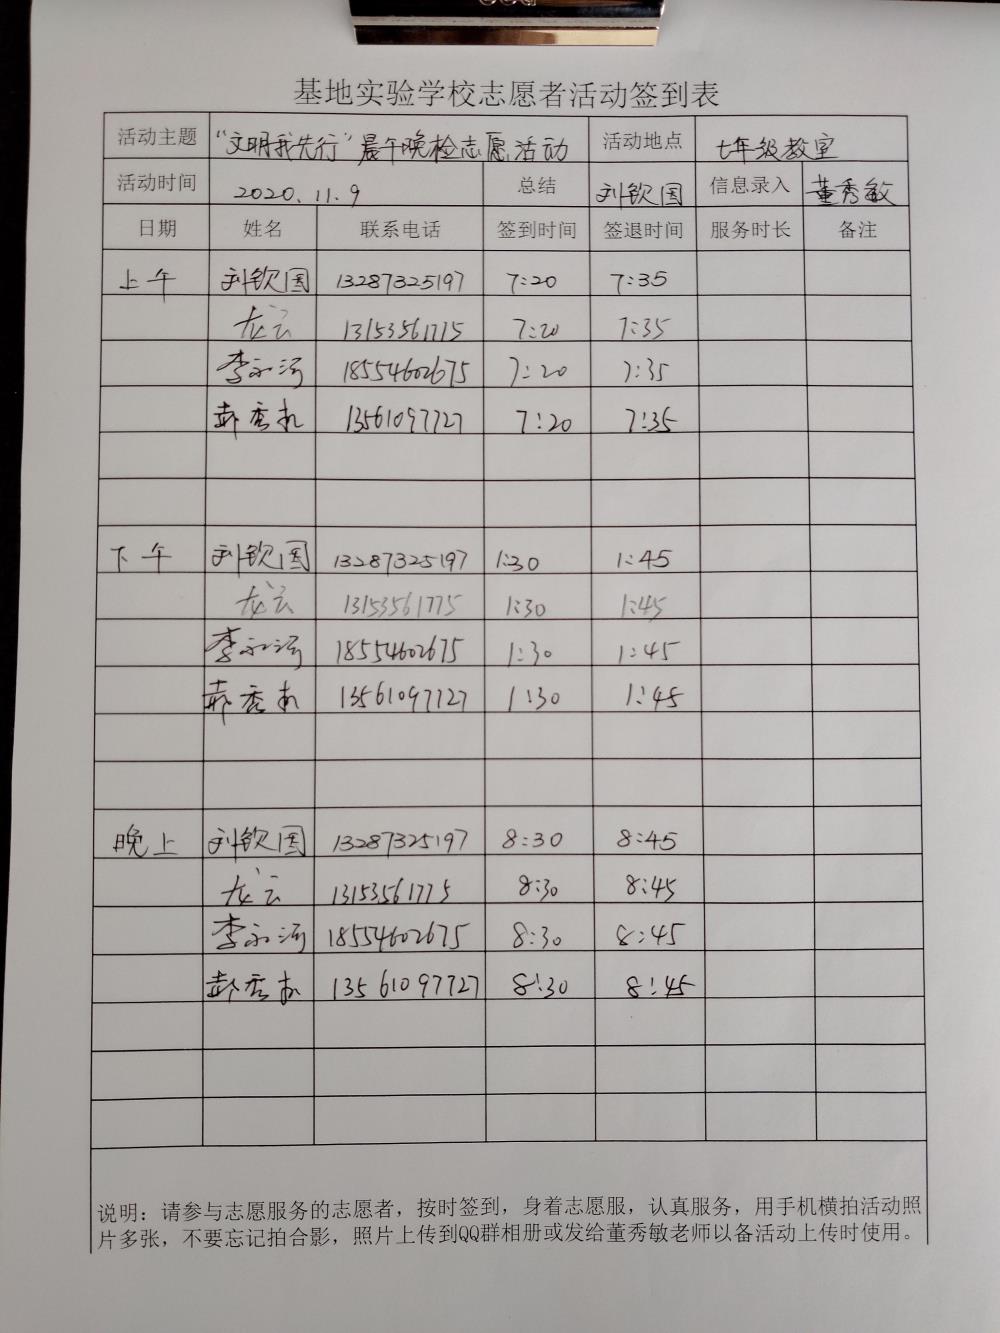 基地实验学校志愿者活动签到表
活动主题 “文明我先行”晨午晚检志愿活动 活动地点 七年级教室
活动时间 2020.11.9 总结 刘钦国 信息录入 董秀敏
日期 姓名 联系电话 签到时间 签退时间 服务时长 备注
上午 刘钦国 13287325197 7:20 7:35
龙云 13153561775 7:20 7:35
李永河 18554602675 7:20 7:35
13561097727 7:20 7:35
下午 刘钦国 13287325197 1:30 1:45
龙云 13153561775 1:30 1:45
李永河 18554602675 1:30 1:45
13561097727 1:30 1:45
晚上 刘钦国 13287325197 8:30 8:45
龙云 13153561775 8:30 8:45
李永河 18554602675 8:30 8:45
13561097727 8:30 8:45
说明：请参与志愿服务的志愿者，按时签到，身着志愿服，认真服务，用手机横拍活动照
片多张，不要忘记拍合影，照片上传到QQ群相册或发给董秀敏老师以备活动上传时使用。